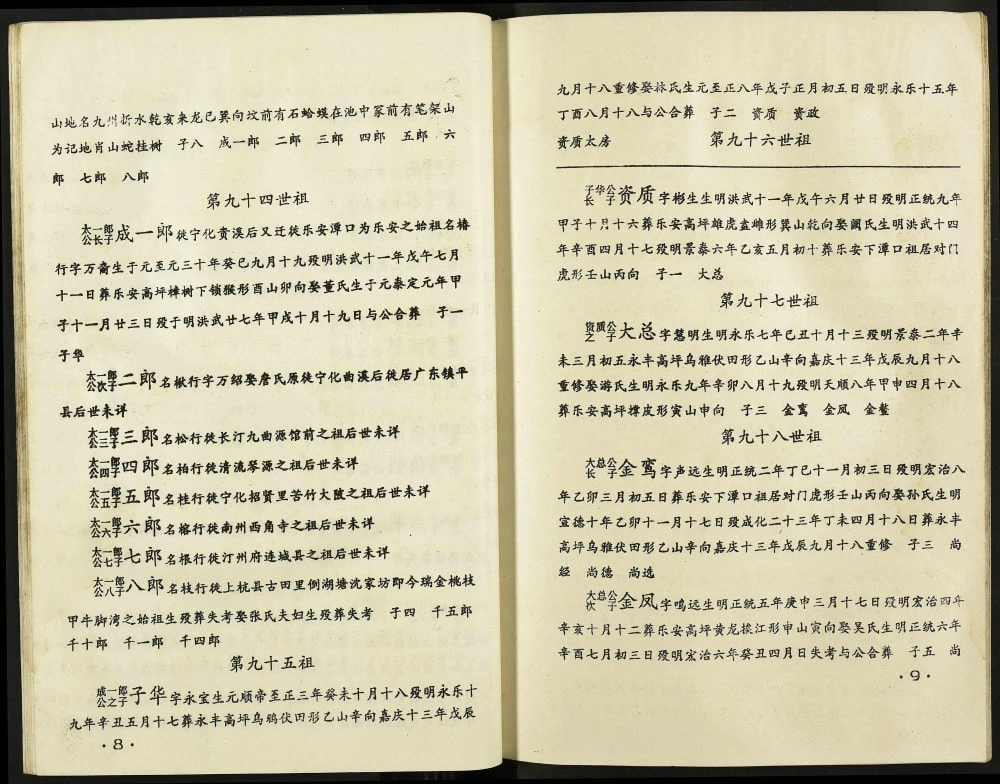 山地名九州折水乾亥来龙巳巽向坟前有石蛤蟆在池中冢前有笔架山
为记地肖山蛇挂树 子八 成一郎 二郎 三郎 四郎 五郎 六
郎 七郎 八郎
第九十四世祖
太一郎公长子成一郎徙宁化贵溪后又迁徙乐安潭口为乐安之始祖名椿
行字万裔生于元至元三十年癸巳九月十九殁明洪武十一年戊午七月
十一日葬乐安高坪樟树下锁猴形酉山卯向娶董氏生于元泰定元年甲
子十一月廿三日殁于明洪武廿七年甲戌十月十九日与公合葬 子一
子华
太一郎公次子二郎名楸行字万绍娶詹氏原徙宁化曲溪后徙居广东镇平
县后世未详
太一郎公三子三郎名松行徙长汀九曲源馆前之祖后世未详
太一郎公四子四郎名柏行徙清流琴源之祖后世未详
太一郎公五子五郎名桂行徙宁化招贤里苦竹大陂之祖后世未详
太一郎公六子六郎名榕行徙南州西角寺之祖后世未详
太一郎公七子七郎名根行徙汀州府连城县之祖后世未详
太一郎公八子八郎名枝行徙上杭县古田里倒湖塘沈家坊即今瑞金桃枝
甲牛脚湾之始祖生殁葬失考娶张氏夫妇生殁葬失考 子四 千五郎
千十郎 千一郎 千四郎
第九十五祖
成一郎公之子子华字永宝生元顺帝至正三年癸未十月十八殁明永乐十
九年辛丑五月十七葬永丰高坪乌鸦伏田形乙山辛向嘉庆十三年戊辰
·8·
九月十八重修娶林氏生元至正八年戊子正月初五日殁明永乐十五年
丁酉八月十八与公合葬 子二 资质 资政
资质太房 第九十六世祖
子华公长子资质字彬生生明洪武十一年戊午六月廿日殁明正统九年
甲子十月十六葬乐安高坪雄虎盘雌形巽山乾向娶阙氏生明洪武十四
年辛酉四月十七殁明景泰六年乙亥五月初十葬乐安下潭口祖居对门
虎形壬山丙向 子一 大总
第九十七世祖
资质公之子大总字慧明生明永乐七年己丑十月十三殁明景泰二年辛
未三月初五永丰高坪乌雅伏田形乙山辛向嘉庆十三年戊辰九月十八
重修娶游氏生明永乐九年辛卯八月十九殁明天顺八年甲申四月十八
葬乐安高坪樟皮形寅山申向 子三 金鸾 金凤 金鳌
第九十八世祖
大总公长子金鸾字声远生明正统二年丁巳十一月初三日殁明宏治八
年乙卯三月初五日葬乐安下潭口祖居对门虎形壬山丙向娶孙氏生明
宣德十年乙卯十一月十七日殁成化二十三年丁未四月十八日葬永丰
高坪乌雅伏田形乙山辛向嘉庆十三年戊辰九月十八重修 子三 尚
经 尚德 尚选
大总公次子金凤字鸣远生明正统五年庚申三月十七日殁明宏治四年
辛亥十月十二葬乐安高坪黄龙挨江形申山寅向娶吴氏生明正统六年
辛酉七月初三日殁明宏治六年癸丑四月日失考与公合葬 子五 尚
·9·